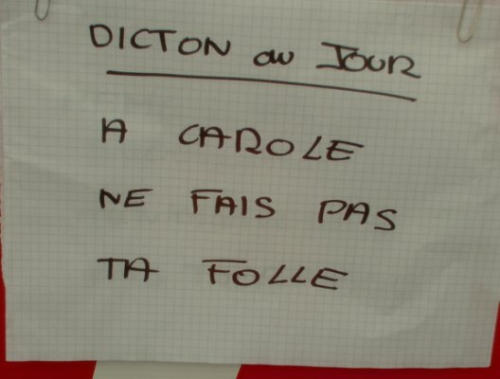 DICTON du JOUR
A CAROLE
NE FAIS PAS
TA FOLLE